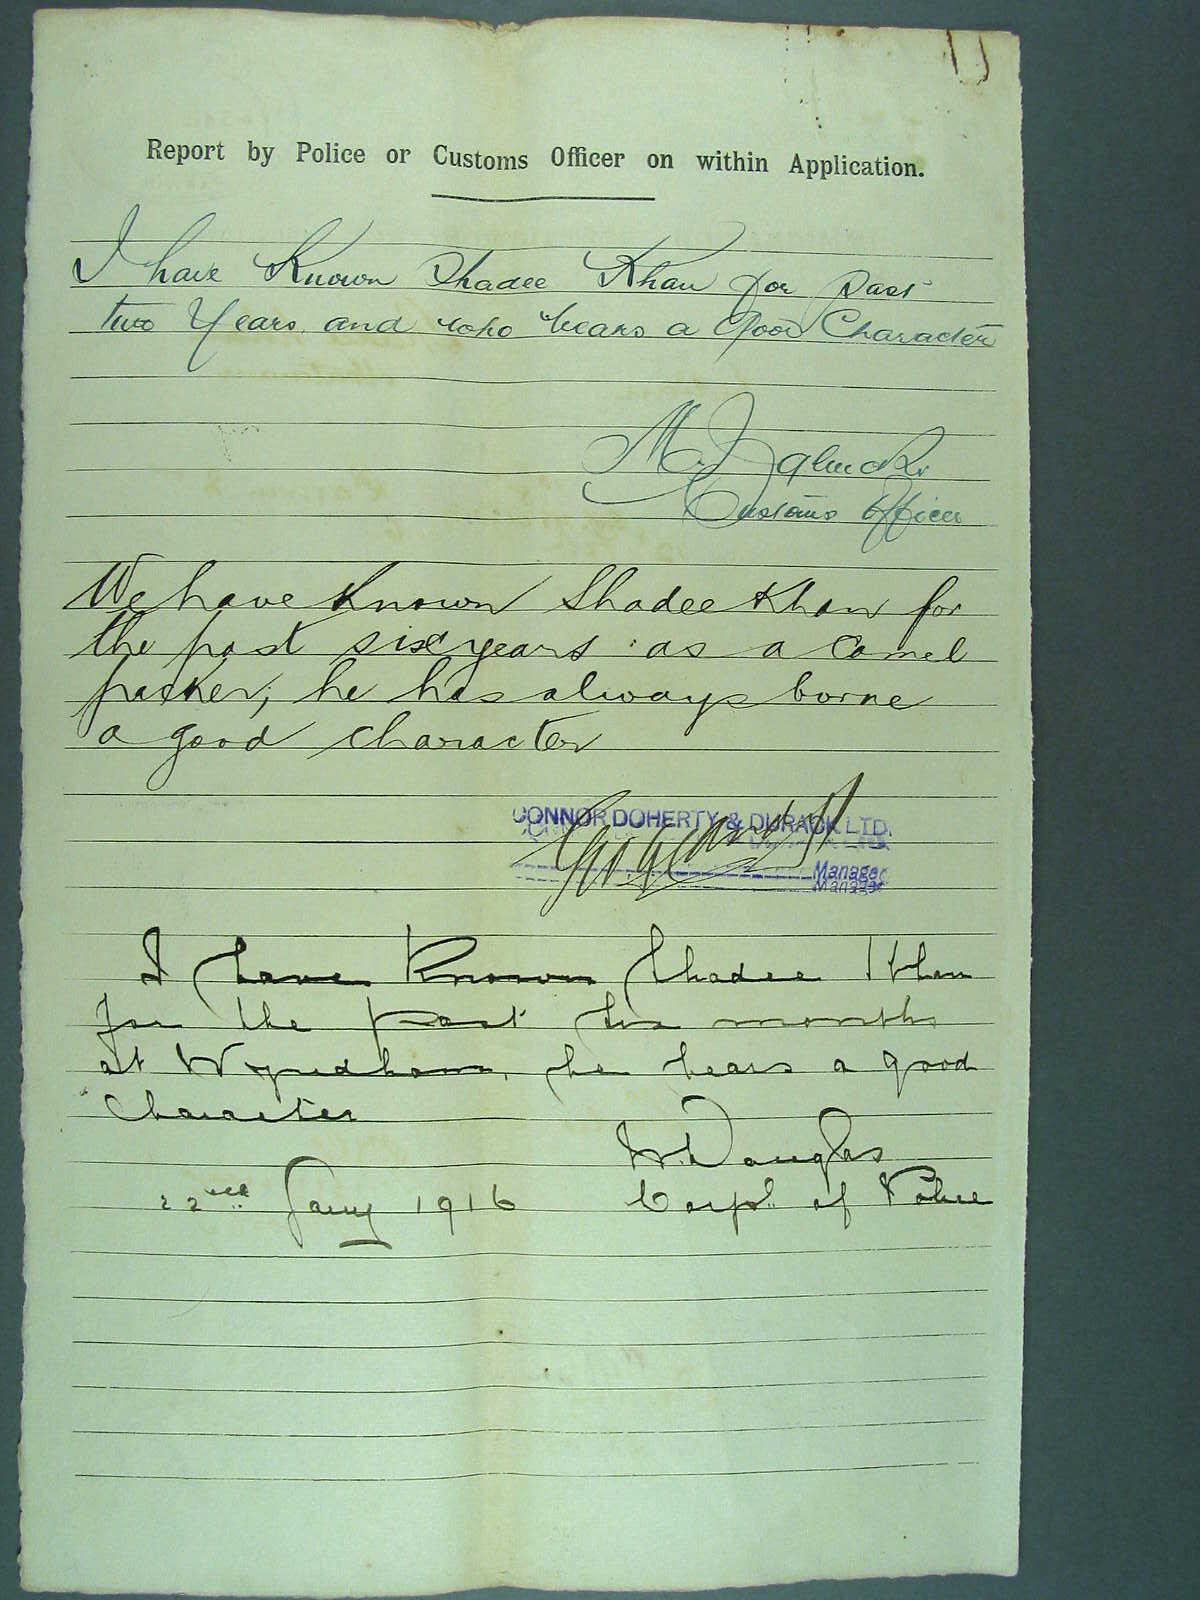 Report by Police or Customs Officer on within Application.
I have Known Shadee Khan for past
two Years and who bears a Good Character
Customs Officer
We have known Shadee Khan for
the past six years as a Camel
packer, he has always borne
a good character
CONNOR DOHERTY & DURACK LTD.
Manager
Manager
I have Known Shadee Khan
for the past six months
at Wyndham, he bears a good
Character
W. Douglas
22nd Jany 1916 Corpl. of Police